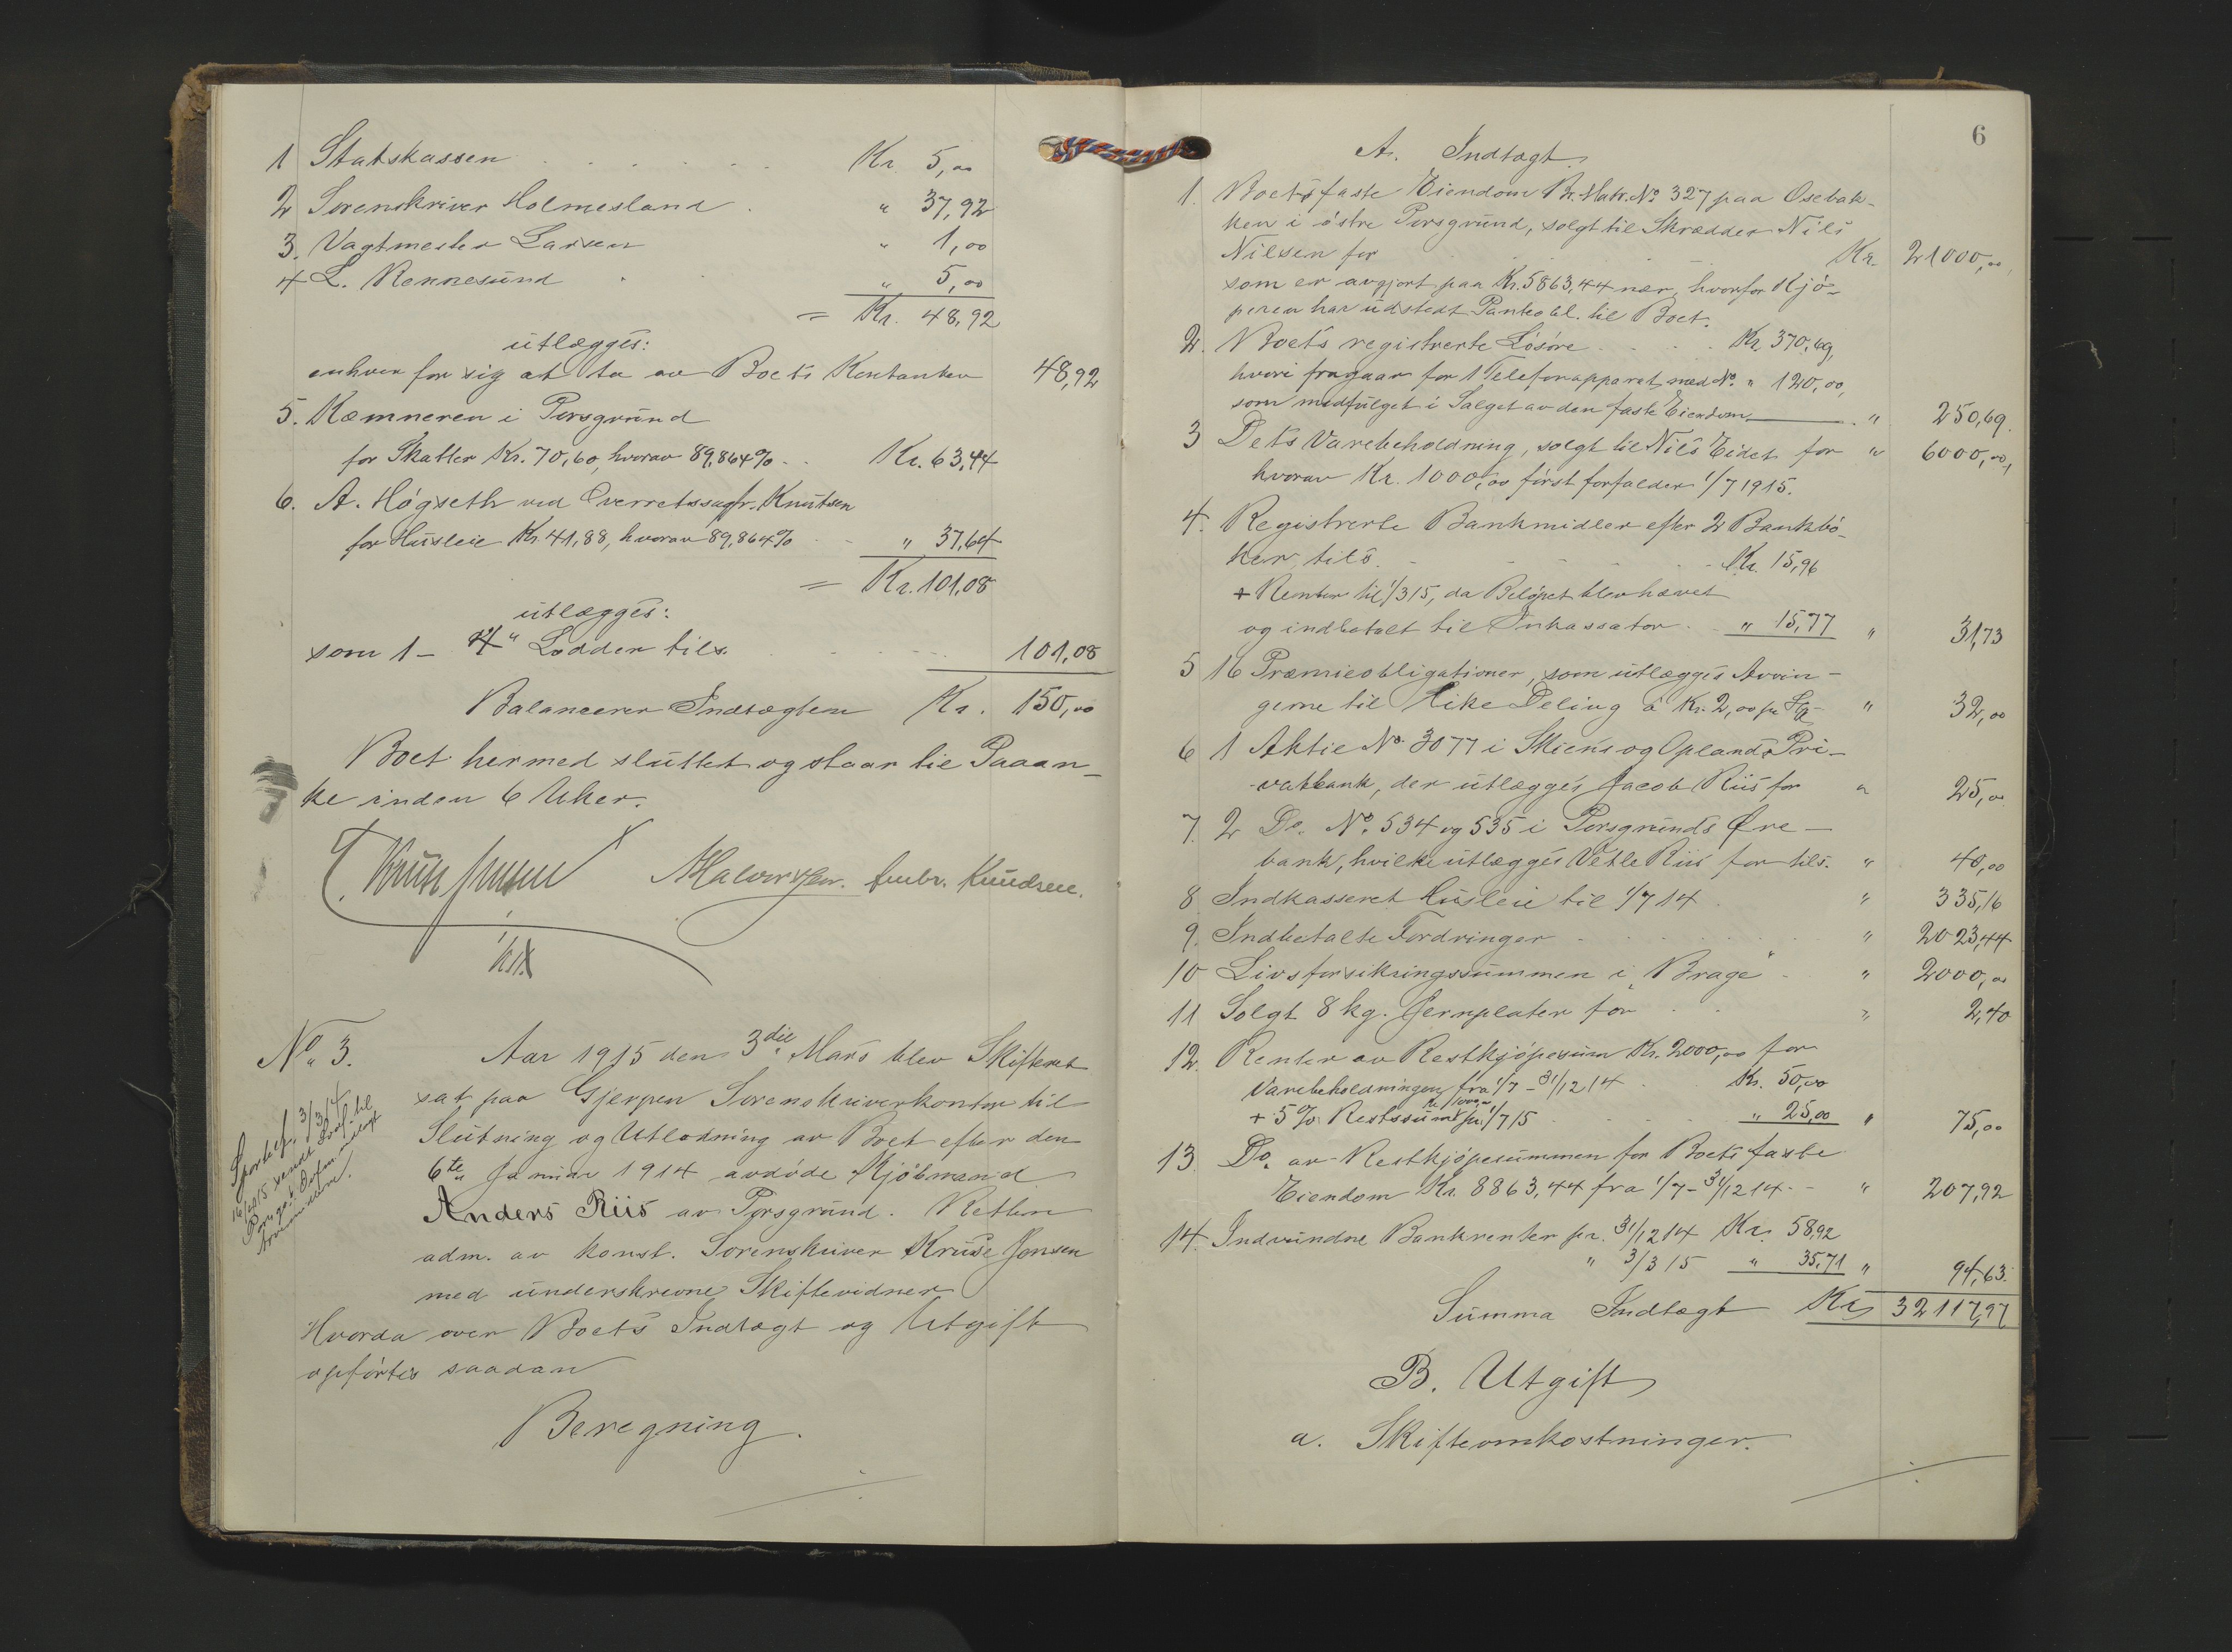 1 Statskassen . . . . . . Kr. 5,00
2 Sorenskriver Holmesland . " 37,92
3. Vagtmester Larsen " 1,00
4 L. Rennesund . " 5,00
= Kr. 48,92
utlægges:
enhver for sig at ta av Boets Kontanter 48,92
5. Kæmneren i Porsgrund
for Skatter Kr. 70,60, hvorav 89,864% . . Kr. 63,44
6. A. Høgseth ved Overretssagfr. Knutsen
for Husleie Kr. 41,88, hvorav 89,864% . . " 37,64
= Kr. 101,08
utlægges:
som 1 - 4" Lodder tils. . . . . 101,08
Balancerer Indtægten Kr. 150,00
Boet hermed sluttet og staar til Paaan-
ke inden 6 Uker.
Kruse Jensen Halvorsen. Ambr. Knudsen.
kst.
No. 3. Aar 1915 den 3die Mars blev Skifteret
sat paa Gjerpen Sorenskriverkontor til
Slutning og Utlodning av Boet efter den
6te Januar 1914 avdøde Kjøbmand
Anders Riis av Porsgrund. Retten
adm. av konst. Sorenskriver Kruse Jensen
med underskrevne Skiftevidner
Hvorda over Boets Indtægt og Utgift
opførtes saadan
Beregning.
6
A. Indtægt.
1. Boets faste Eiendom Br. Matr. No 327 paa Osebak-
ken i østre Porsgrund, solgt til Skrædder Nils
Nilsen for . . . . Kr. 21000,00,
som er avgjort paa Kr. 5863,44 nær, hvorfor Kjø-
peren har udstedt Panteobl. til Boet.
2. Boets registrerte Løsøre . . . . Kr. 370,69,
hvori fragaar for 1 Telefonapparat med No. " 120,00,
som medfulget i Salget av den faste Eiendom " 250,69.
3 Dets Varebeholdning, solgt til Nils Eidet for " 6000,00,
hvorav Kr. 1000,00 først forfalder 1/7 1915.
4. Registrerte Bankmidler efter 2 Bankbø-
ker, tils. . . . . Kr. 15,96
+ Renter til 1/3 15, da Beløpet blev hævet
og indbetalt til Inkassator. . " 15,77 " 31,73
5 16 Præmieobligationer, som utlægges Arvin-
gerne til Like Deling à Kr. 2,00 pr. Stk. " 32,00
6 1 Aktie No. 3077 i Skiens og Oplands Pri-
vatbank, der utlægges Jacob Riis for " 25,00
7. 2 Do. No. 534 og 535 i Porsgrunds Øre-
bank, hvilke utlægges Vetle Riis for tils. " 40,00
8 Indkasseret Husleie til 1/7 14 . " 335,16
9. Indbetalte Fordringer . . . . " 2023,44
10 Livsforsikringssummen i "Brage" . " 2000,00
11 Solgt 8 kg. Jernplater for . . " 2,40
12. Renter av Restkjøpesum Kr. 2000,00 for
Varebeholdningen fra 1/7 - 31/12 14 . Kr. 50,00
+ 5% Restssum kr 1000,- pr. 1/7 15 . . . " 25,00 " 75,00
13. Do. av Restkjøpesummen for Boets faste
Eiendom Kr. 8863,44 fra 1/7 - 31/12 14 . - " 207,92
14. Indvundne Bankrenter pr. 31/12 14 Kr. 58,92
" 3/3 15 " 35,71 " 94,63.
Summa Indtægt Kr. 32117,97
B. Utgift
a. Skifteomkostninger.